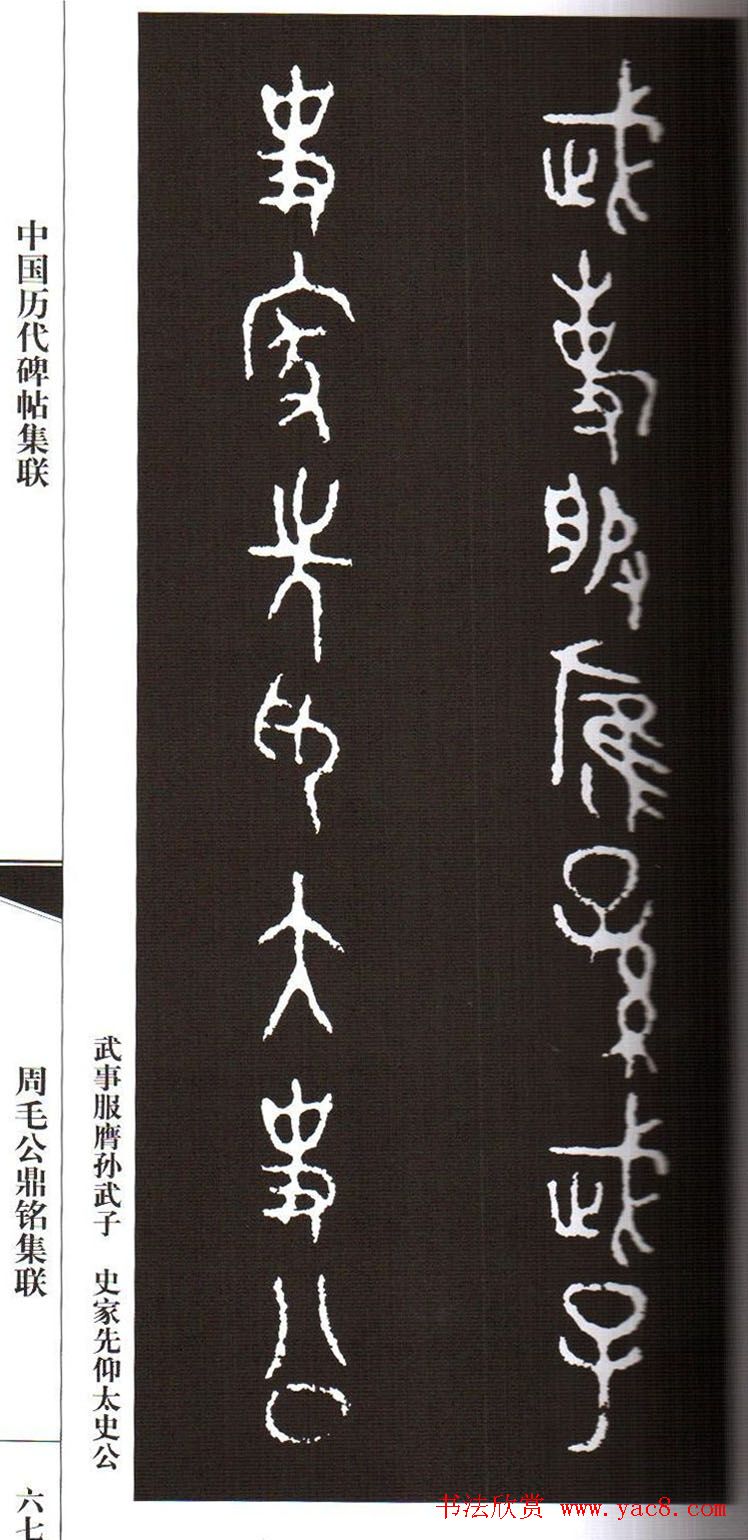 武事服膺孙武子
史家先仰太史公
武事服膺孙武子　史家先仰太史公
中国历代碑帖集联
周毛公鼎铭集联
六七
书法欣赏 www.yac8.com